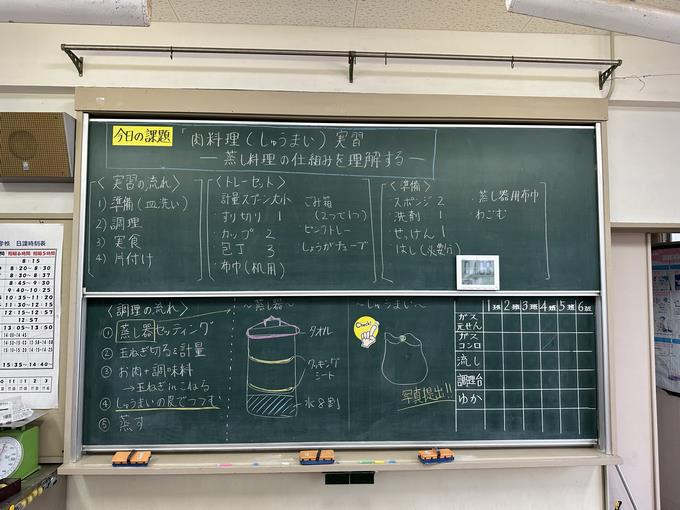 今日の課題
「肉料理(しゅうまい)実習
―蒸し料理の仕組みを理解する―
<実習の流れ>
1) 準備(皿洗い)
2) 調理
3) 実食
4) 片付け
<トレーセット>
計量スプーン大小
すり切り 1
・カップ 2
・包丁 3
・布巾(机用)
ごみ箱
(2つで1つ)
ピンクトレー
しょうがチューブ
<準備>
スポンジ 2
・洗剤 1
・せっけん 1
・蒸し器用布巾
わごむ
<調理の流れ>
① 蒸し器セッティング
② 玉ねぎ切る&計量
③ お肉+調味料
→玉ねぎinこねる
④ しゅうまいの皮でつつむ
⑤ 蒸す
〜蒸し器〜
タオル
クッキング
シート
水8割
〜しゅうまい〜
Check!
写真提出!!
1班 2班 3班 4班 5班 6班
ガス
元せん
ガス
コンロ
流し
調理台
ゆか
日課時刻表
8:20-8:30
8:30-8:37
8:45-9:30
9:40-10:25
10:35-11:20
11:30-12:15
15:35-14:40